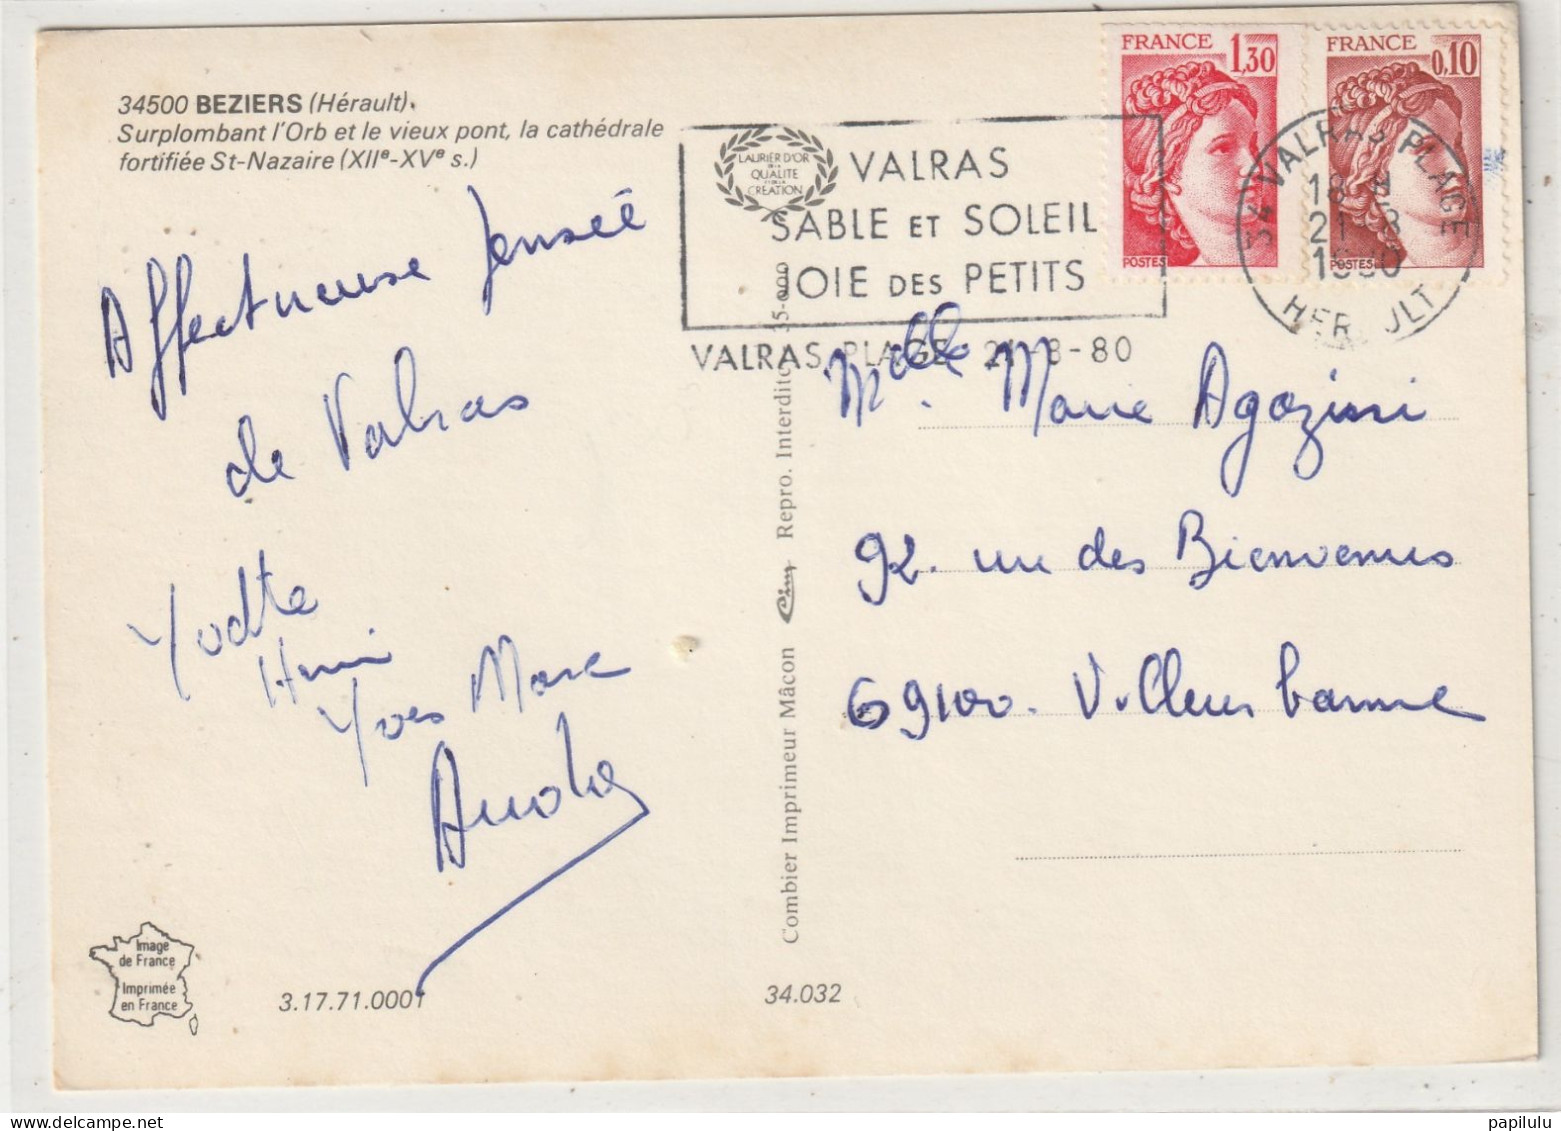 34500 BEZIERS (Hérault).
Surplombant l'Orb et le vieux pont, la cathédrale
fortifiée St-Nazaire (XIIe-XVe s.)
Affectueuse pensée
de Valras
Henri
Yves Marc
LAURIER D'OR
DE LA
QUALITE
ET DE LA
CREATION
VALRAS
SABLE ET SOLEIL
JOIE DES PETITS
VALRAS PLAGE 21-8-80
FRANCE 1,30
POSTES
FRANCE 0,10
POSTES
34 VALRAS PLAGE
18 H
21 8
1980
HERAULT
Melle. Marie Agozini
92. rue des Bienvenus
69100. Villeurbanne
Combier Imprimeur Mâcon Cim Repro. Interdite 35-000
Image
de France
Imprimée
en France
3.17.71.0001
34.032
papilulu